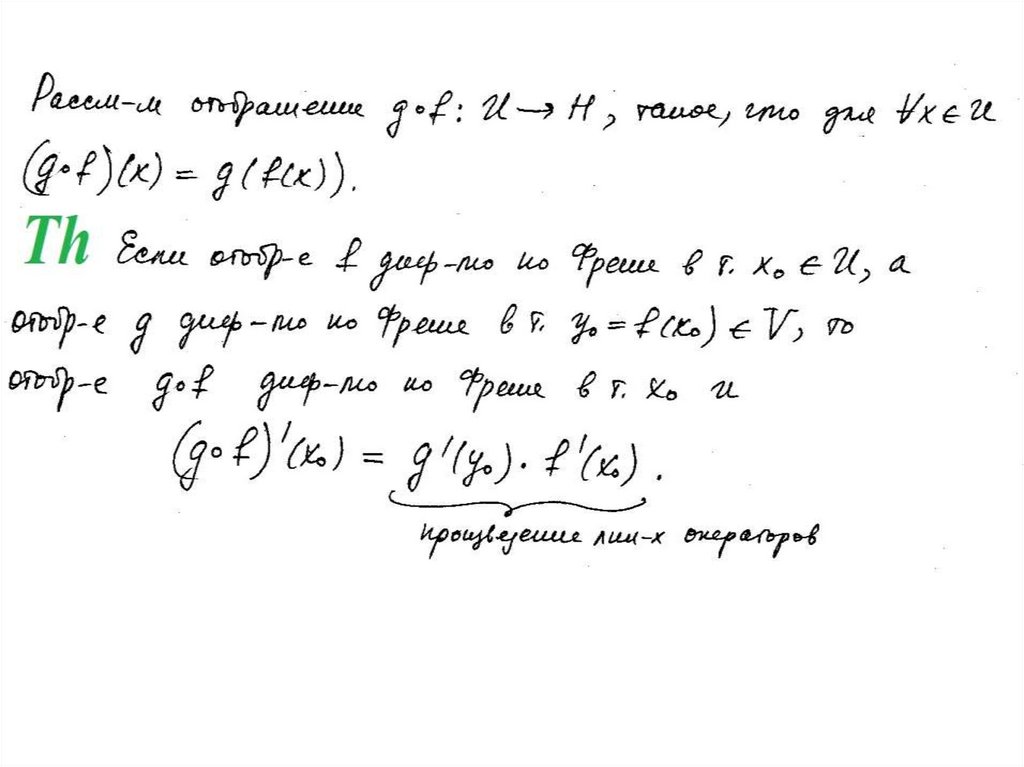 Рассм-м отображение g∘f: U → H, такое, что для ∀x ∈ U
(g∘f)(x) = g(f(x)).
Th Если отобр-е f диф-мо по Фреше в т. x₀ ∈ U, а
отобр-е g диф-мо по Фреше в т. y₀ = f(x₀) ∈ V, то
отобр-е g∘f диф-мо по Фреше в т. x₀ и
(g∘f)'(x₀) = g'(y₀) · f'(x₀).
произведение лин-х операторов